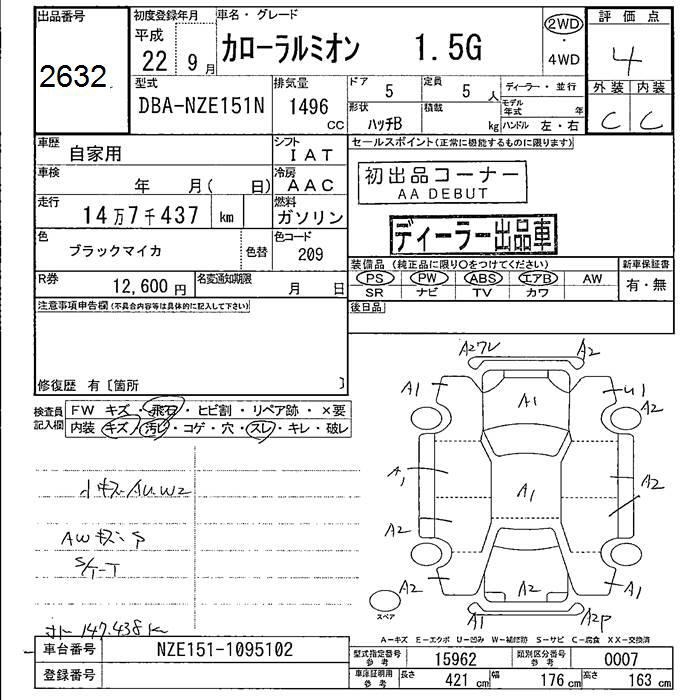 出品番号
2632
初度登録年月
平成
22 9月
車名・グレード
カローラルミオン 1.5G
2WD
・
4WD
評価点
4
外装 内装
C C
型式
DBA-NZE151N
排気量
1496
CC
ドア
5
定員
5 人
ディーラー・並行
モデル年式 年
形状
ハッチB
積載
kg
ハンドル 左・右
車歴
自家用
シフト
IAT
車検
年 月( 日)
冷房
AAC
走行
14万7千437 km
燃料
ガソリン
色
ブラックマイカ
色替
色コード
209
R券
12,600円
名変通知期限
月 日
セールスポイント(正常に機能するものに限ります)
初出品コーナー
AA DEBUT
ディーラー出品車
装備品 (純正品に限り○をつけてください)
PS PW ABS エアB AW
SR ナビ TV カワ
新車保証書
有・無
後日品
注意事項申告欄(不具合内容等は具体的に記入して下さい)
修復歴 有〔箇所 〕
検査員記入欄
FW キズ・飛石・ヒビ割・リペア跡・×要
内装 キズ・汚レ・コゲ・穴・スレ・キレ・破レ
小キズ・AU.W2
AWキズ・P
S/T-T
147,438K
A2ワレ A2
A1 A1 U1
A2
A1 A1 A2
A2
A2 A2 A1
スペア
A1 A2P
A-キズ E-エクボ U-凹み W-補修跡 S-サビ C-腐食 XX-交換済
車台番号
NZE151-1095102
登録番号
型式指定番号
参考
15962
類別区分番号
参考
0007
車庫証明用
参考
長さ 421 cm 幅 176 cm 高さ 163 cm